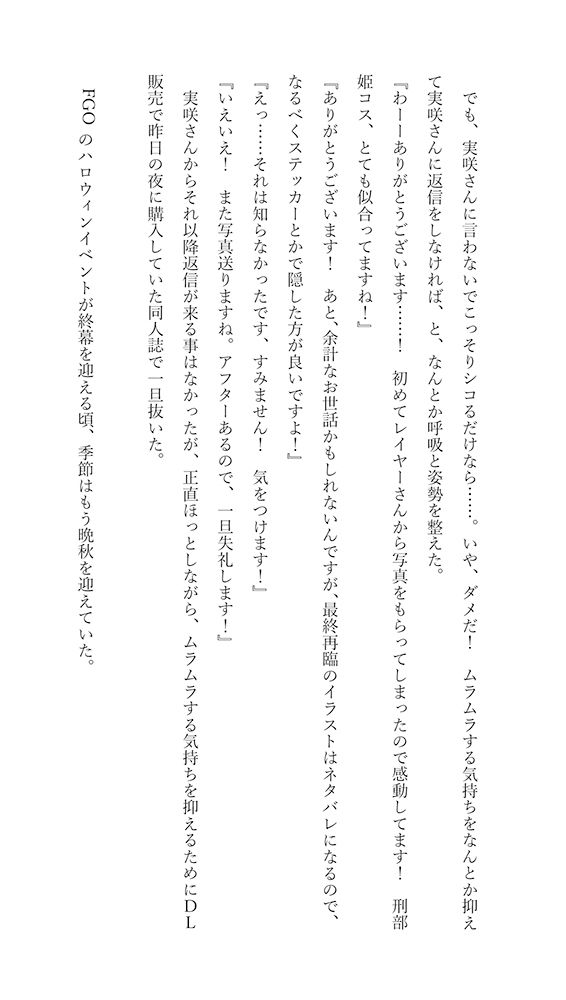 でも、実咲さんに言わないでこっそりシコるだけなら……。いや、ダメだ！　ムラムラする気持ちをなんとか抑え
て実咲さんに返信をしなければ、と、なんとか呼吸と姿勢を整えた。
『わーーありがとうございます……！　初めてレイヤーさんから写真をもらってしまったので感動してます！　刑部
姫コス、とても似合ってますね！』
『ありがとうございます！　あと、余計なお世話かもしれないんですが、最終再臨のイラストはネタバレになるので、
なるべくステッカーとかで隠した方が良いですよ！』
『えっ……それは知らなかったです、すみません！　気をつけます！』
『いえいえ！　また写真送りますね。アフターあるので、一旦失礼します！』
実咲さんからそれ以降返信が来る事はなかったが、正直ほっとしながら、ムラムラする気持ちを抑えるためにＤＬ
販売で昨日の夜に購入していた同人誌で一旦抜いた。
FGO のハロウィンイベントが終幕を迎える頃、季節はもう晩秋を迎えていた。